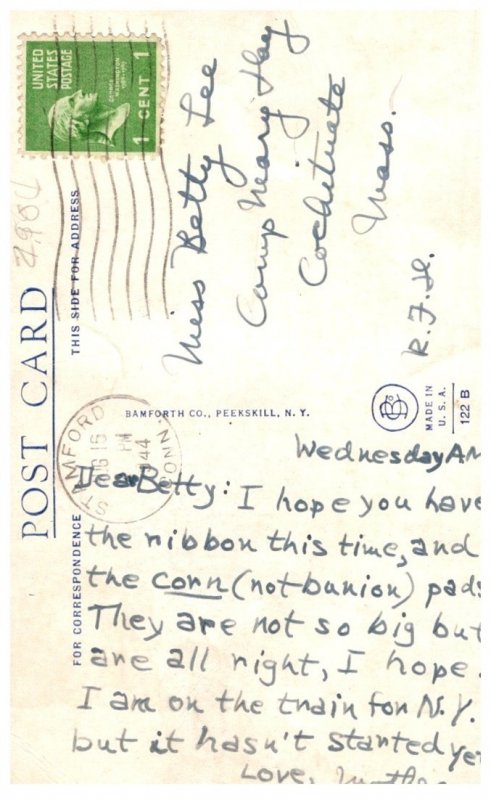 UNITED
STATES
POSTAGE
1 CENT 1
Miss Betty Lee
Camp Mary Day
Cochituate
Mass.
THIS SIDE FOR ADDRESS
POST CARD
FOR CORRESPONDENCE
BAMFORTH CO., PEEKSKILL, N. Y.
MADE IN
U. S. A.
122 B
STAMFORD
CONN.
16
PM
1944
Wednesday AM
Dear Betty: I hope you have
the ribbon this time, and
the corn (not bunion) pads
They are not so big but
are all right, I hope.
I am on the train for N.Y.
but it hasn't started yet
Love, Mother